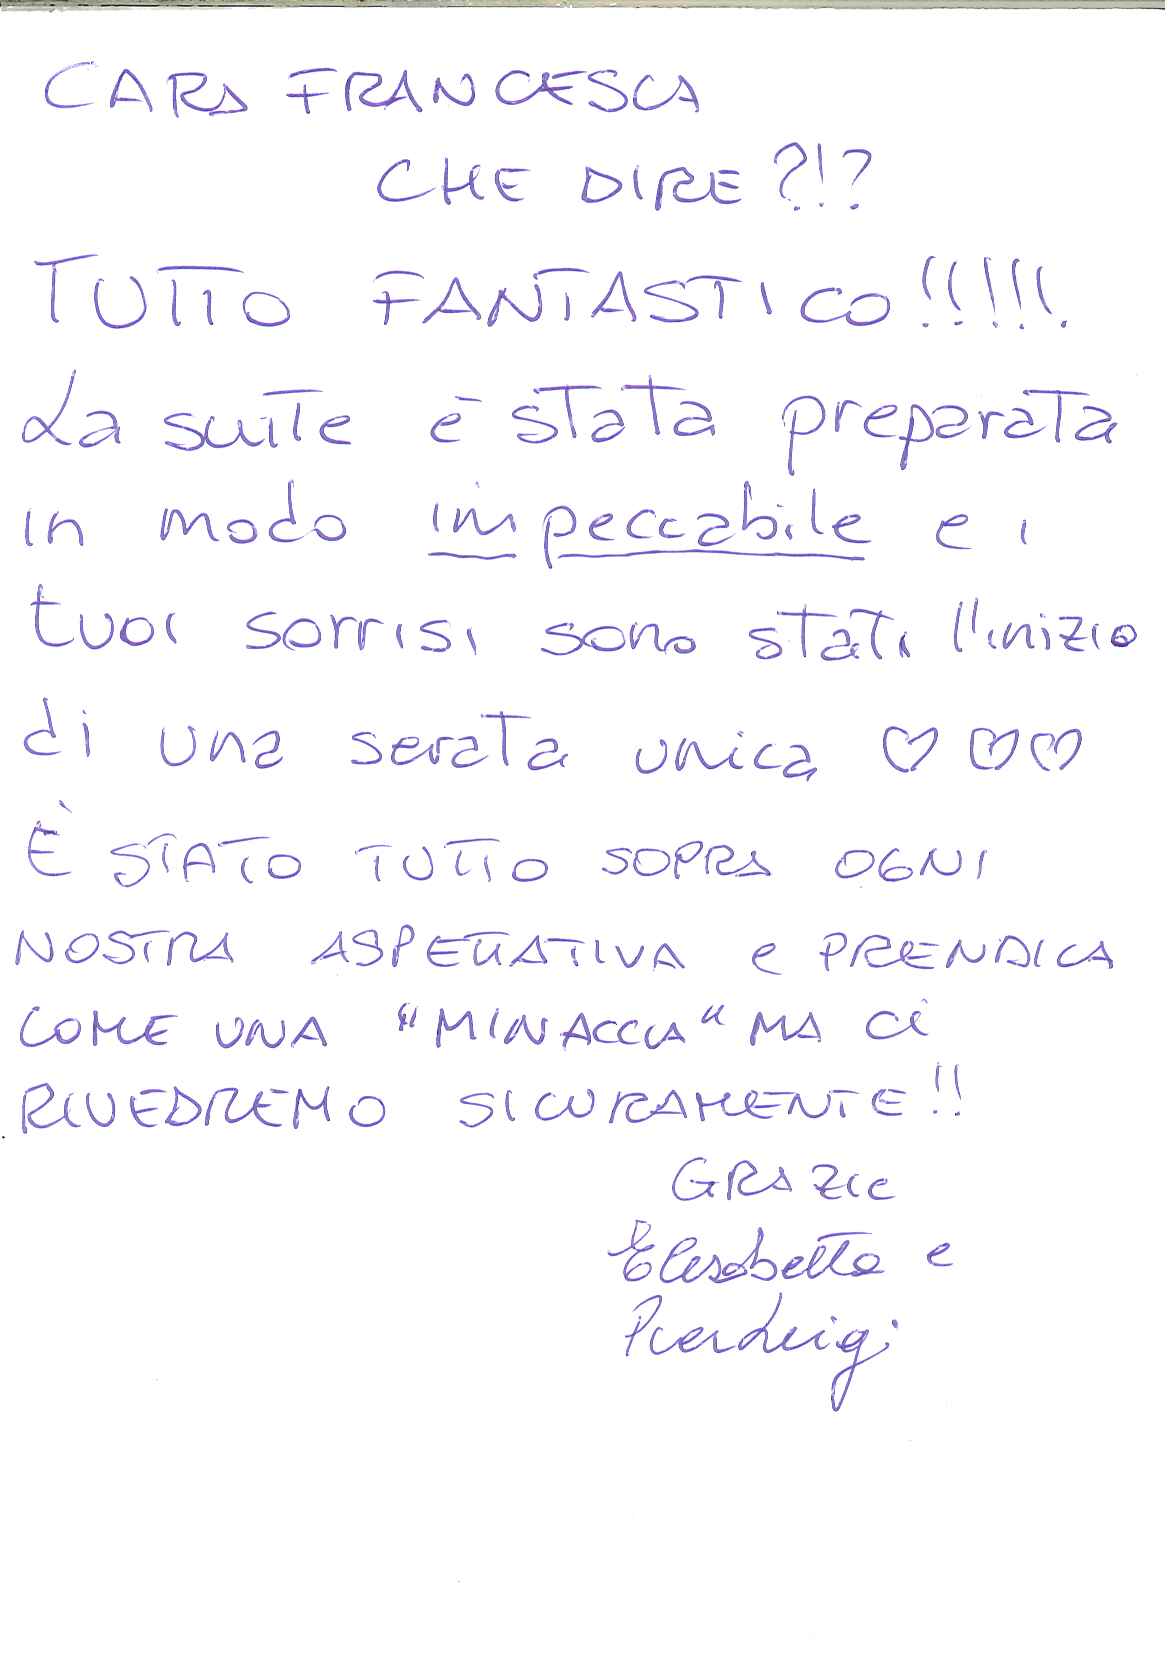 CARA FRANCESCA
CHE DIRE ?!?
TUTTO FANTASTICO!!!!!!
La suite è stata preparata
in modo impeccabile e i
tuoi sorrisi sono stati l'inizio
di una serata unica ♡♡♡
È STATO TUTTO SOPRA OGNI
NOSTRA ASPETTATIVA e PRENDICA
COME UNA "MINACCIA" MA CI
RIVEDREMO SICURAMENTE!!
GRAZIE
Elisabetta e
PierLuigi